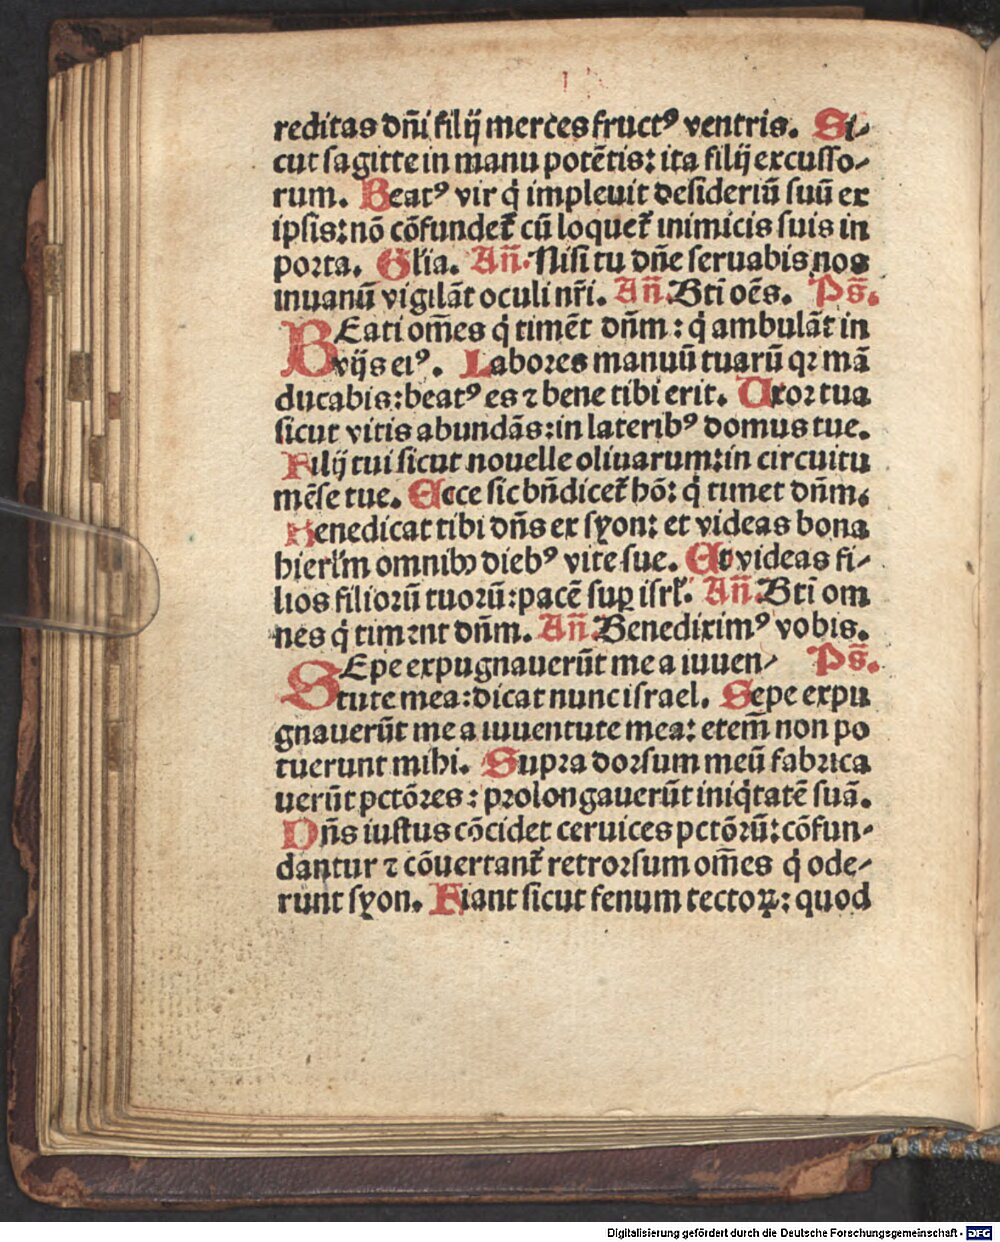 reditas dñi filij merces fructꝰ ventris. Si-
cut sagitte in manu potẽtis: ita filij excusso-
rum. Beatꝰ vir q̇ impleuit desideriũ suũ ex
ipsis: nõ cõfundet̃ cũ loquet̃ inimicis suis in
porta. Gl̃ia. Añ. Nisi tu dñe seruabis nos
inuanũ vigilãt oculi nr̃i. Añ. Bti oẽs. Ps̃.
BEati om̃es q̇ timẽt dñm: q̇ ambulãt in
vijs eiꝰ. Labores manuũ tuarũ qꝛ mã
ducabis: beatꝰ es ⁊ bene tibi erit. Uxor tua
sicut vitis abundãs: in lateribꝰ domus tue.
Filij tui sicut nouelle oliuarum: in circuitu
mẽse tue. Ecce sic bñdicet̃ hõ: q̇ timet dñm.
Benedicat tibi dñs ex syon: et videas bona
hierl̃m omnibꝫ diebꝰ vite sue. Et videas fi-
lios filiorũ tuorũ: pacẽ suꝑ isrl̃. Añ. Bti om
nes q̇ timent dñm. Añ. Benediximꝰ vobis.
SEpe expugnauerũt me a iuuen- Ps̃.
tute mea: dicat nunc israel. Sepe expu
gnauerũt me a iuuentute mea: etem̃ non po
tuerunt mihi. Supra dorsum meũ fabrica
uerũt pctõres: prolongauerũt iniq̇tatẽ suã.
Dñs iustus cõcidet ceruices pctõrũ: cõfun-
dantur ⁊ cõuertant̃ retrorsum om̃es q̇ ode-
runt syon. Fiant sicut fenum tectoꝝ: quod
Digitalisierung gefördert durch die Deutsche Forschungsgemeinschaft - DFG